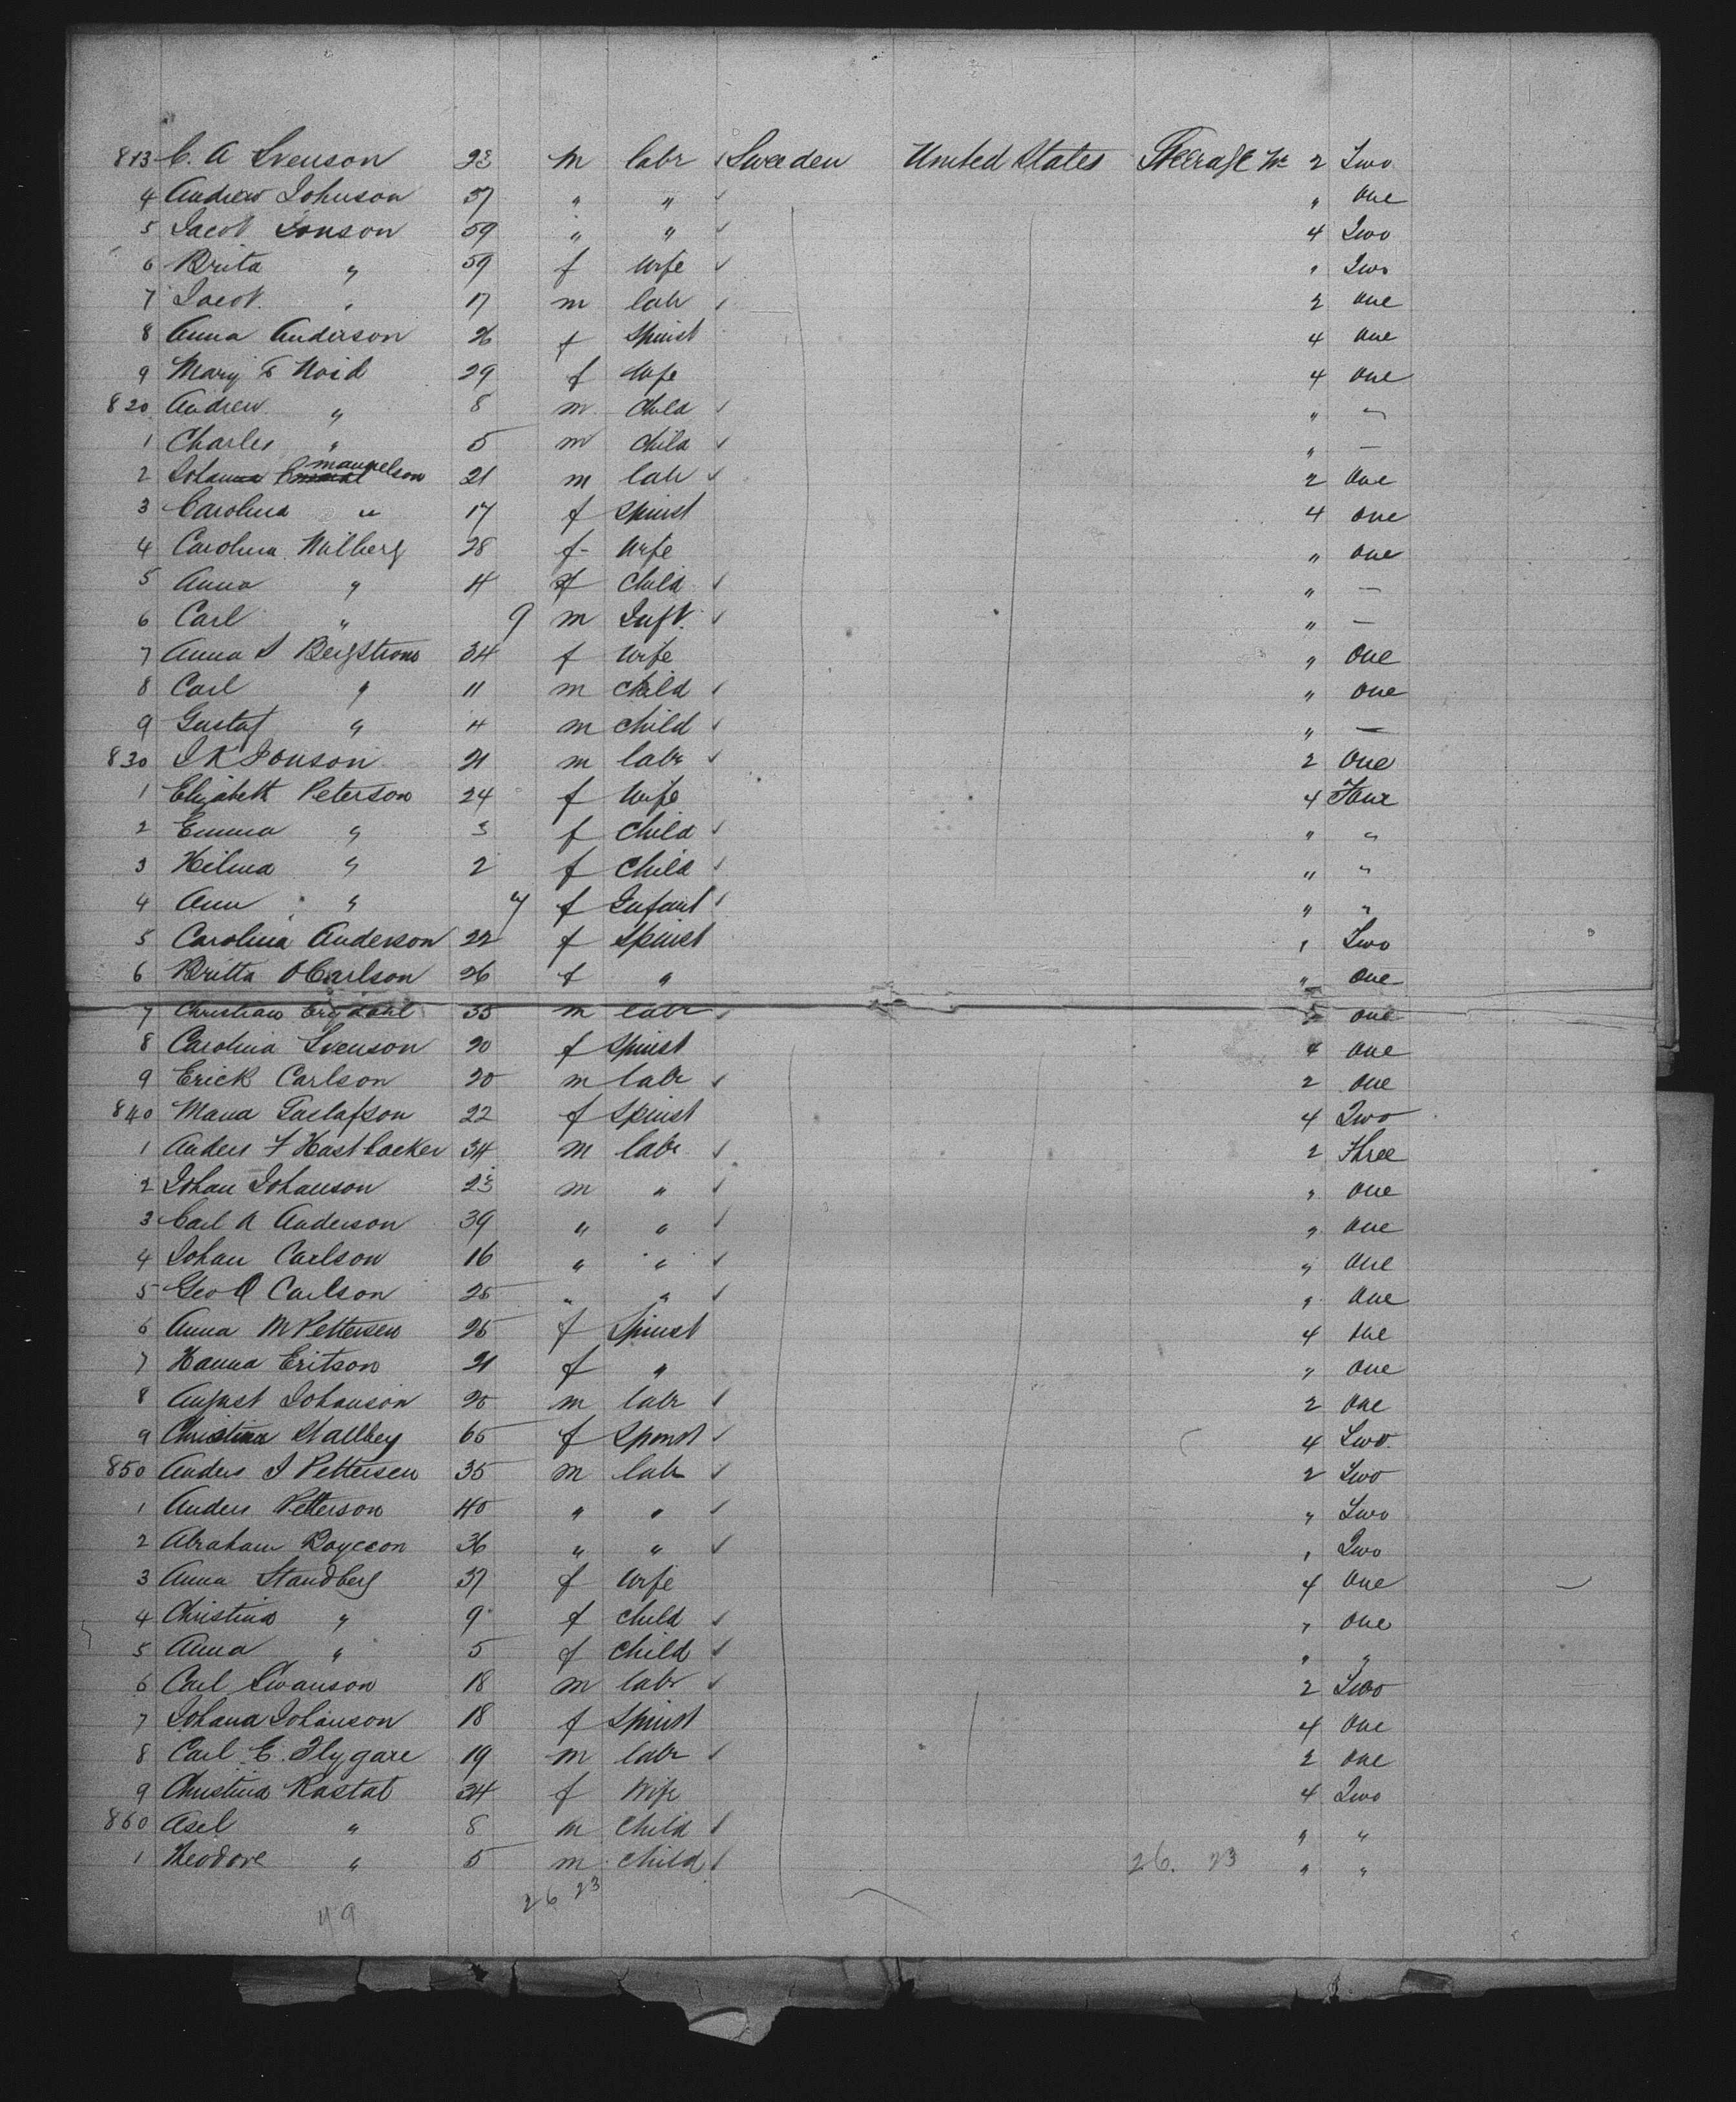 813 C. A Svenson 23 m labr Sweeden United States Steerage No 2 Two
4 Andrew Johnson 37 " " " one
5 Jacob Jonson 59 " " 4 Two
6 Brita " 59 f wife " Two
7 Jacob " 17 m labr 2 one
8 Anna Anderson 26 f spinst 4 one
9 Mary F Noid 29 f wife 4 one
820 Andrew " 8 m child " "
1 Charles " 5 m child " —
2 Johan manuelson 21 m labr 2 one
3 Carolina " 17 f spinst 4 one
4 Carolina Walberg 28 f wife " one
5 Anna " 4 f child " —
6 Carl " 9 m Inft. " —
7 Anna S Bergstrom 34 f wife " one
8 Carl " 11 m child " one
9 Gustaf " 4 m child " —
830 J K Jonson 21 m labr 2 one
1 Elizabeth Peterson 24 f wife 4 Four
2 Emma " 3 f child " "
3 Hilma " 2 f child " "
4 Ann " f Infant " "
5 Carolina Anderson 22 f spinst " Two
6 Britta O Carlson 26 f " " one
7 Christian 35 m labr one
8 Carolina Svenson 20 f spinst 4 one
9 Erick Carlson 20 m labr 2 one
840 Maria Gustafson 22 f spinst 4 Two
1 Anders F Hastbacker 34 m labr 2 Three
2 Johan Johanson 23 m " " one
3 Carl A Anderson 39 " " " one
4 Johan Carlson 16 " " " one
5 Geo O Carlson 25 " " " one
6 Anna M Pettersen 25 f Spinst 4 one
7 Hanna Eritson 21 f " " one
8 August Johanson 25 m labr 2 one
9 Christina Stallbey 65 f spinst 4 Two
850 Anders J Pettersen 35 m labr 2 Two
1 Anders Petterson 40 " " " Two
2 Abraham 36 " " " Two
3 Anna Standberg 37 f wife 4 one
4 Christina " 9 f child " one
5 Anna " 5 f child " "
6 Carl Swanson 18 m labr 2 Two
7 Johana Johanson 18 f spinst 4 one
8 Carl E. Flygare 19 m labr 2 one
9 Christina Rastat 34 f wife 4 Two
860 Axel " 8 m child " "
1 Theodore " 5 m child 26. 23 " "
26 23
49